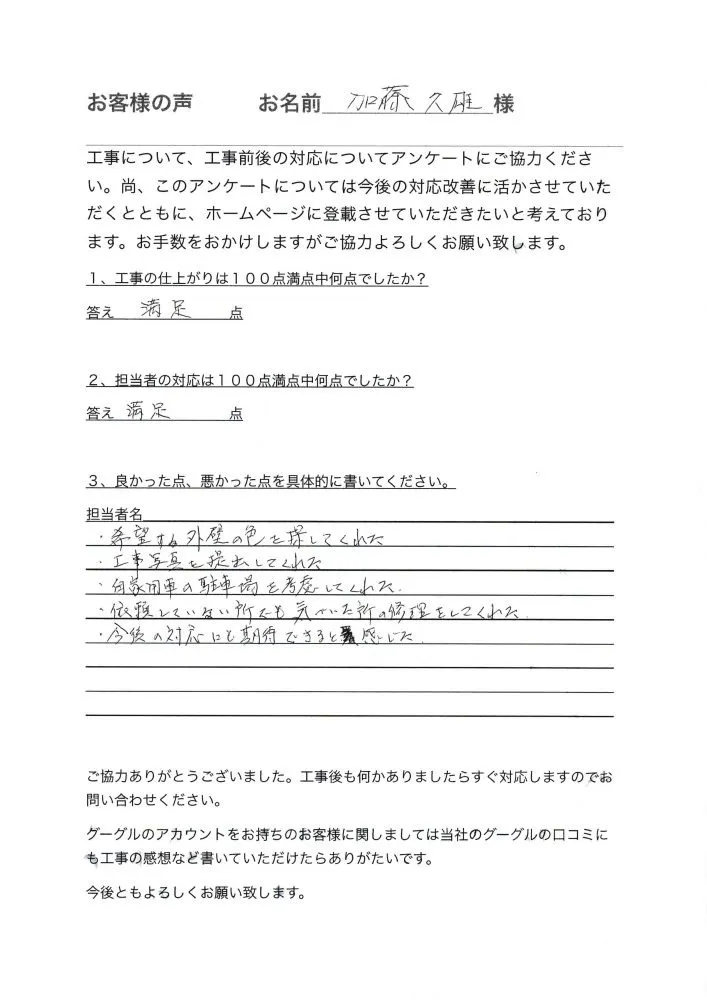 お客様の声 お名前 加藤久雄 様
工事について、工事前後の対応についてアンケートにご協力くださ
い。尚、このアンケートについては今後の対応改善に活かさせていた
だくとともに、ホームページに登載させていただきたいと考えており
ます。お手数をおかけしますがご協力よろしくお願い致します。
1、工事の仕上がりは100点満点中何点でしたか？
答え 満足 点
2、担当者の対応は100点満点中何点でしたか？
答え 満足 点
3、良かった点、悪かった点を具体的に書いてください。
担当者名
・希望する外壁の色を探してくれた
・工事写真を提出してくれた
・自家用車の駐車場を考慮してくれた.
・依頼していない所でも気づいた所の修理をしてくれた.
・今後の対応にも期待できると感じた.
ご協力ありがとうございました。工事後も何かありましたらすぐ対応しますのでお
問い合わせください。
グーグルのアカウントをお持ちのお客様に関しましては当社のグーグルの口コミに
も工事の感想など書いていただけたらありがたいです。
今後ともよろしくお願い致します。